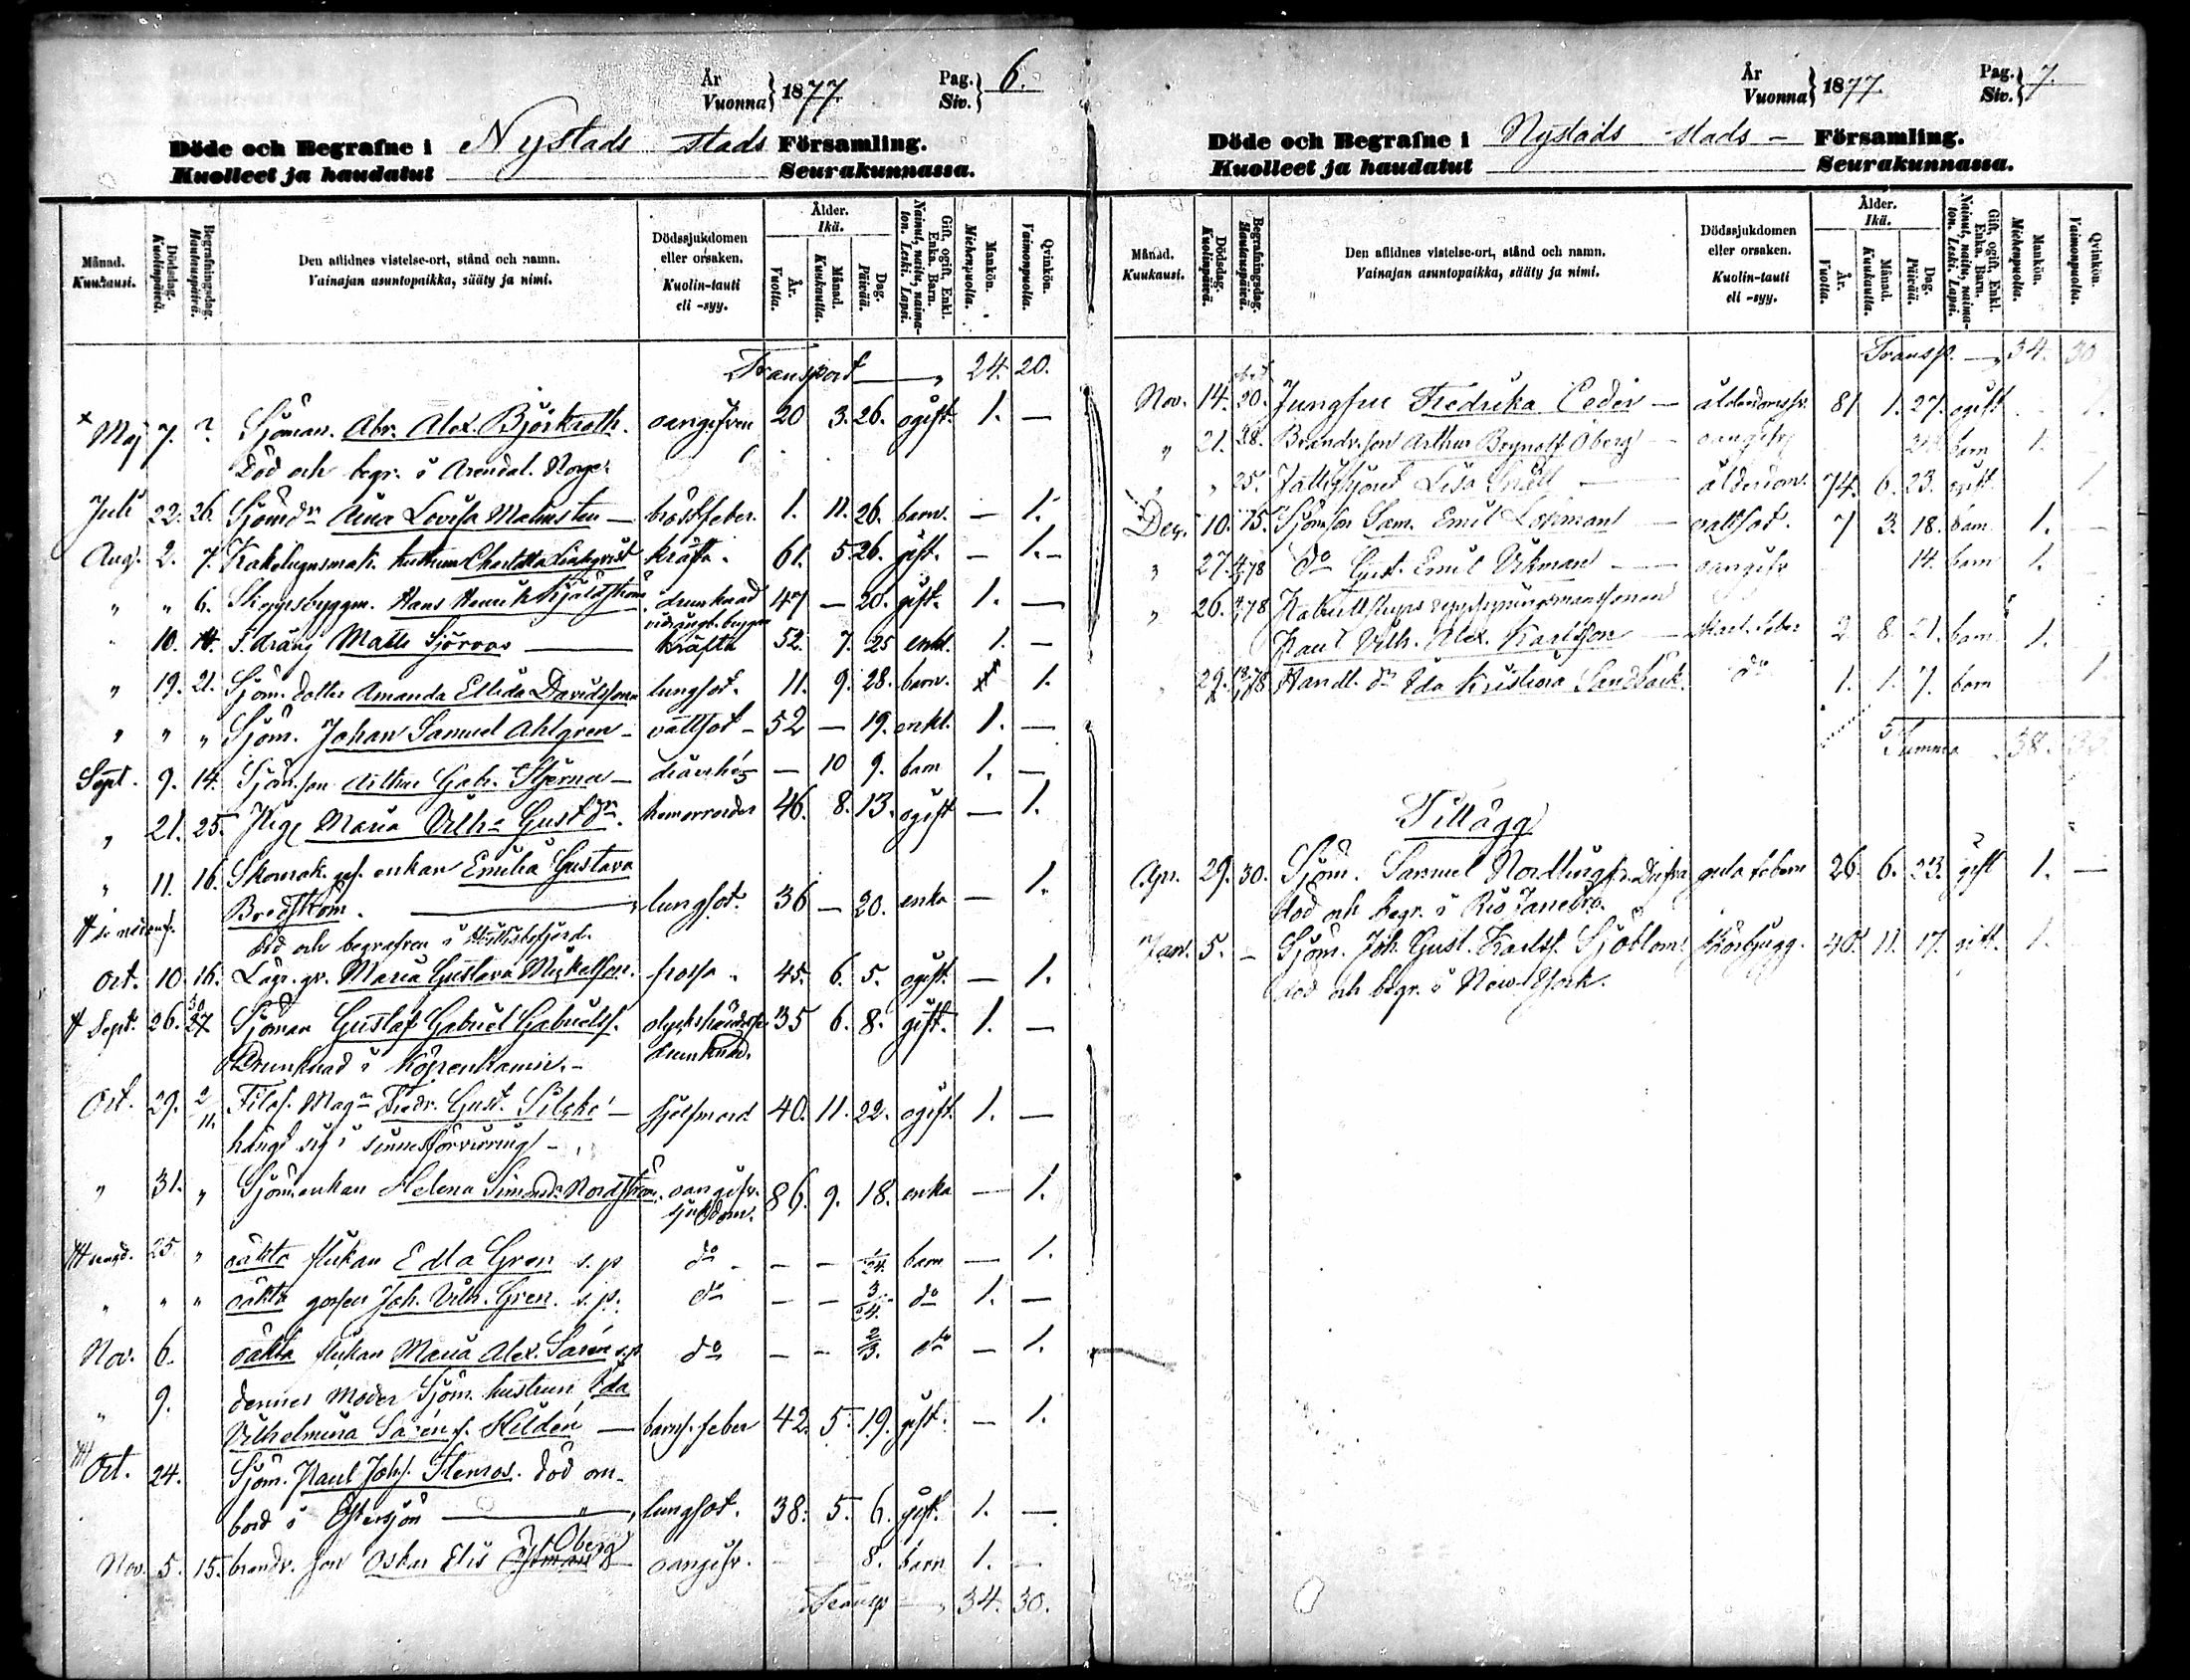 År
Vuonna } 1877.
Pag.
Siv. } 6.
Döde och Begrafne i Nystads stads Församling.
Kuolleet ja haudatut Seurakunnassa.
Månad. Kuukausi.
Dödsdag. Kuolinpäivä.
Begrafningsdag. Hautauspäivä.
Den aflidnes vistelse-ort, stånd och namn.
Vainajan asuntopaikka, sääty ja nimi.
Dödssjukdomen eller orsaken.
Kuolin-tauti eli -syy.
Ålder. Ikä.
År. Vuotta.
Månad. Kuukautta.
Dag. Päivää.
Gift, ogift, Enkl. Enka. Barn.
Nainut, naitu, naimaton. Leski. Lapsi.
Mankön. Miehenpuolta.
Qvinkön. Vaimonpuolta.
Transport — 24. 20.
Maj 7. ? Sjöman. Abr. Alex. Björkroth. oangifven 20 3. 26. ogift. 1. —
Död och begr. i Arendal. Norge.
Juli 22. 26. Sjömdr Aina Lovisa Malmsten — bröstfeber. 1. 11. 26. barn. — 1.
Aug. 2. 7. Kakelugnsmak. hustrun Charlotta Lindqvist kräfta. 61. 5. 26. gift. — 1.
" " 6. Skeppsbyggm. Hans Henrik Kjäldström drunknad 47 — 20. gift. 1. —
" 10. 14. F. dräng Matts Sjöroos — kräfta 52. 7. 25 enkl. 1. —
" 19. 21. Sjöm. dotter Amanda Ellida Davidsson lungsot. 11. 9. 28. barn. 1.
" " " Sjöm. Johan Samuel Ahlgren — vattsot — 52 — 19. enkl. 1. —
Sept. 9. 14. Sjöm. son Arthur Gabr. Stjerna — — 10 9. barn 1. —
" 21. 25. Pig. Maria Vilh:a Gustdr. hemorroider 46. 8. 13. ogift — 1.
" 11. 16. Skomak. ges. enkan Emilia Gustava
Bredström. — lungsot. 36 — 20. enka — 1.
död och begrafven i
Oct. 10. 16. Maria Gustava Mickelson. frossa. 45. 6. 5. ogift. — 1.
Sept. 26. 27 Sjöman Gustaf Gabriel Gabrielss. olyckshändelse 35 6. 8. gift. 1. —
Drunknad i Köpenhamn. — drunknad.
Oct. 29. 2/11. Filos. Mag:r Fredr. Gust. — sjelfmord 40. 11. 22. ogift. 1. —
hängt sig i sinnesförvirring —
" 31. " Sjöm. enkan Helena Simonsdr Nordström. oangifv. sjukdom. 86. 9. 18. enka — 1.
25. " oäkta flickan Edla Gren s. p do — — 1/24. barn — 1.
" " " oäkta gossen Joh. Vilh. Gren. s. p. do — — 3/24. do 1. —
Nov. 6. oäkta flickan Maria Alex. Sarén s. p do — — 2/3. do — 1.
" 9. dennes moder Sjöm. hustrun Ida
Vilhelmina Sarén f. Hildén — barns. feber 42. 5. 19. gift. — 1.
Oct. 24. Sjöm. Karl Johs. Stenros. död om-
bord i Östersjön — lungsot. 38. 5. 6. gift. 1. —
Nov. 5. 15. brandv. son Oskar Elis Öberg oangifv. 8. barn 1. —
Transp — 34. 30.
År
Vuonna } 1877.
Pag.
Siv. } 7.
Döde och Begrafne i Nystads stads — Församling.
Kuolleet ja haudatut Seurakunnassa.
Månad. Kuukausi.
Dödsdag. Kuolinpäivä.
Begrafningsdag. Hautauspäivä.
Den aflidnes vistelse-ort, stånd och namn.
Vainajan asuntopaikka, sääty ja nimi.
Dödssjukdomen eller orsaken.
Kuolin-tauti eli -syy.
Ålder. Ikä.
År. Vuotta.
Månad. Kuukautta.
Dag. Päivää.
Gift, ogift, Enkl. Enka. Barn.
Nainut, naitu, naimaton. Leski. Lapsi.
Mankön. Miehenpuolta.
Qvinkön. Vaimonpuolta.
Transp. — 34. 30
Nov. 14. 20. Jungfru Fredrika Ceder — ålderdomssv. 81 1. 27. ogift 1.
" 21. 28. Brandv. son Arthur Brynolf Öberg — oangifv barn 1.
" " 25. Lisa — ålderdom. 74. 6. 23. gift 1.
Dec. 10. 15. Sjöm. son Sam. Emil — vattsot. 7 3. 18. barn 1. —
" 27. do Gust. Emil Vikman — oangifv 14. barn 1. —
" 26.
Karl Vilh. Alex. Karlsson — Skarl. feber 2 8. 21. barn 1. —
" 29. Handl. dr Ida Kristina Sandbäck. do 1. 1. 7. barn 1
Summa 38.
Tillägg
Apr. 29. 30. Sjöm. Samuel Nordling gula febern 26 6. 23. gift 1. —
död och begr. i Rio Janeiro.
Jan. 5. — Sjöm. Joh. Gust. Karlss. Sjöblom. Skörbjugg. 40. 11. 17. gift. 1.
död och begr. i New-York.